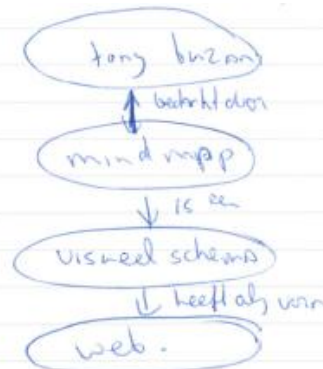 tony buzan
bedacht door
mind mapp
is een
visueel schema
heeft als vorm
web.